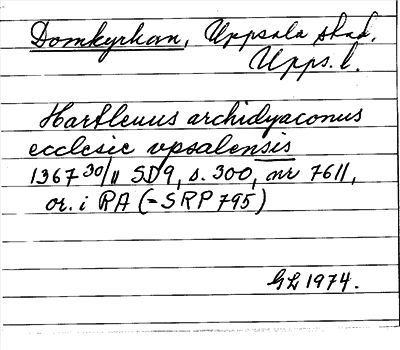 Domkyrkan, Uppsala stad,
Upps. l.
Harbleuus archidyaconus
ecclesie vpsalensis
1367 30/11 SD9, s. 300, nr 7611,
or. i RA (=SRP 795)
GL 1974.